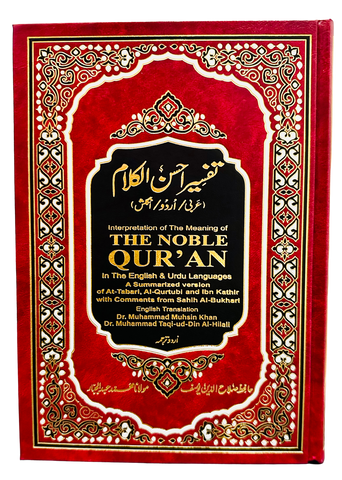 تفسیر احسن الکلام
(عربی/اُردو/انگلش)
Interpretation of The Meaning of
THE NOBLE
QUR'AN
In The English & Urdu Languages
A Summarized version
of At-Tabari, Al-Qurtubi and Ibn Kathir
with Comments from Sahih Al-Bukhari
English Translation
Dr. Muhammad Muhsin Khan
Dr. Muhammad Taqi-ud-Din Al-Hilali
اُردو ترجمہ
حافظ صلاح الدین یوسف مولانا محمد عبدالجبار